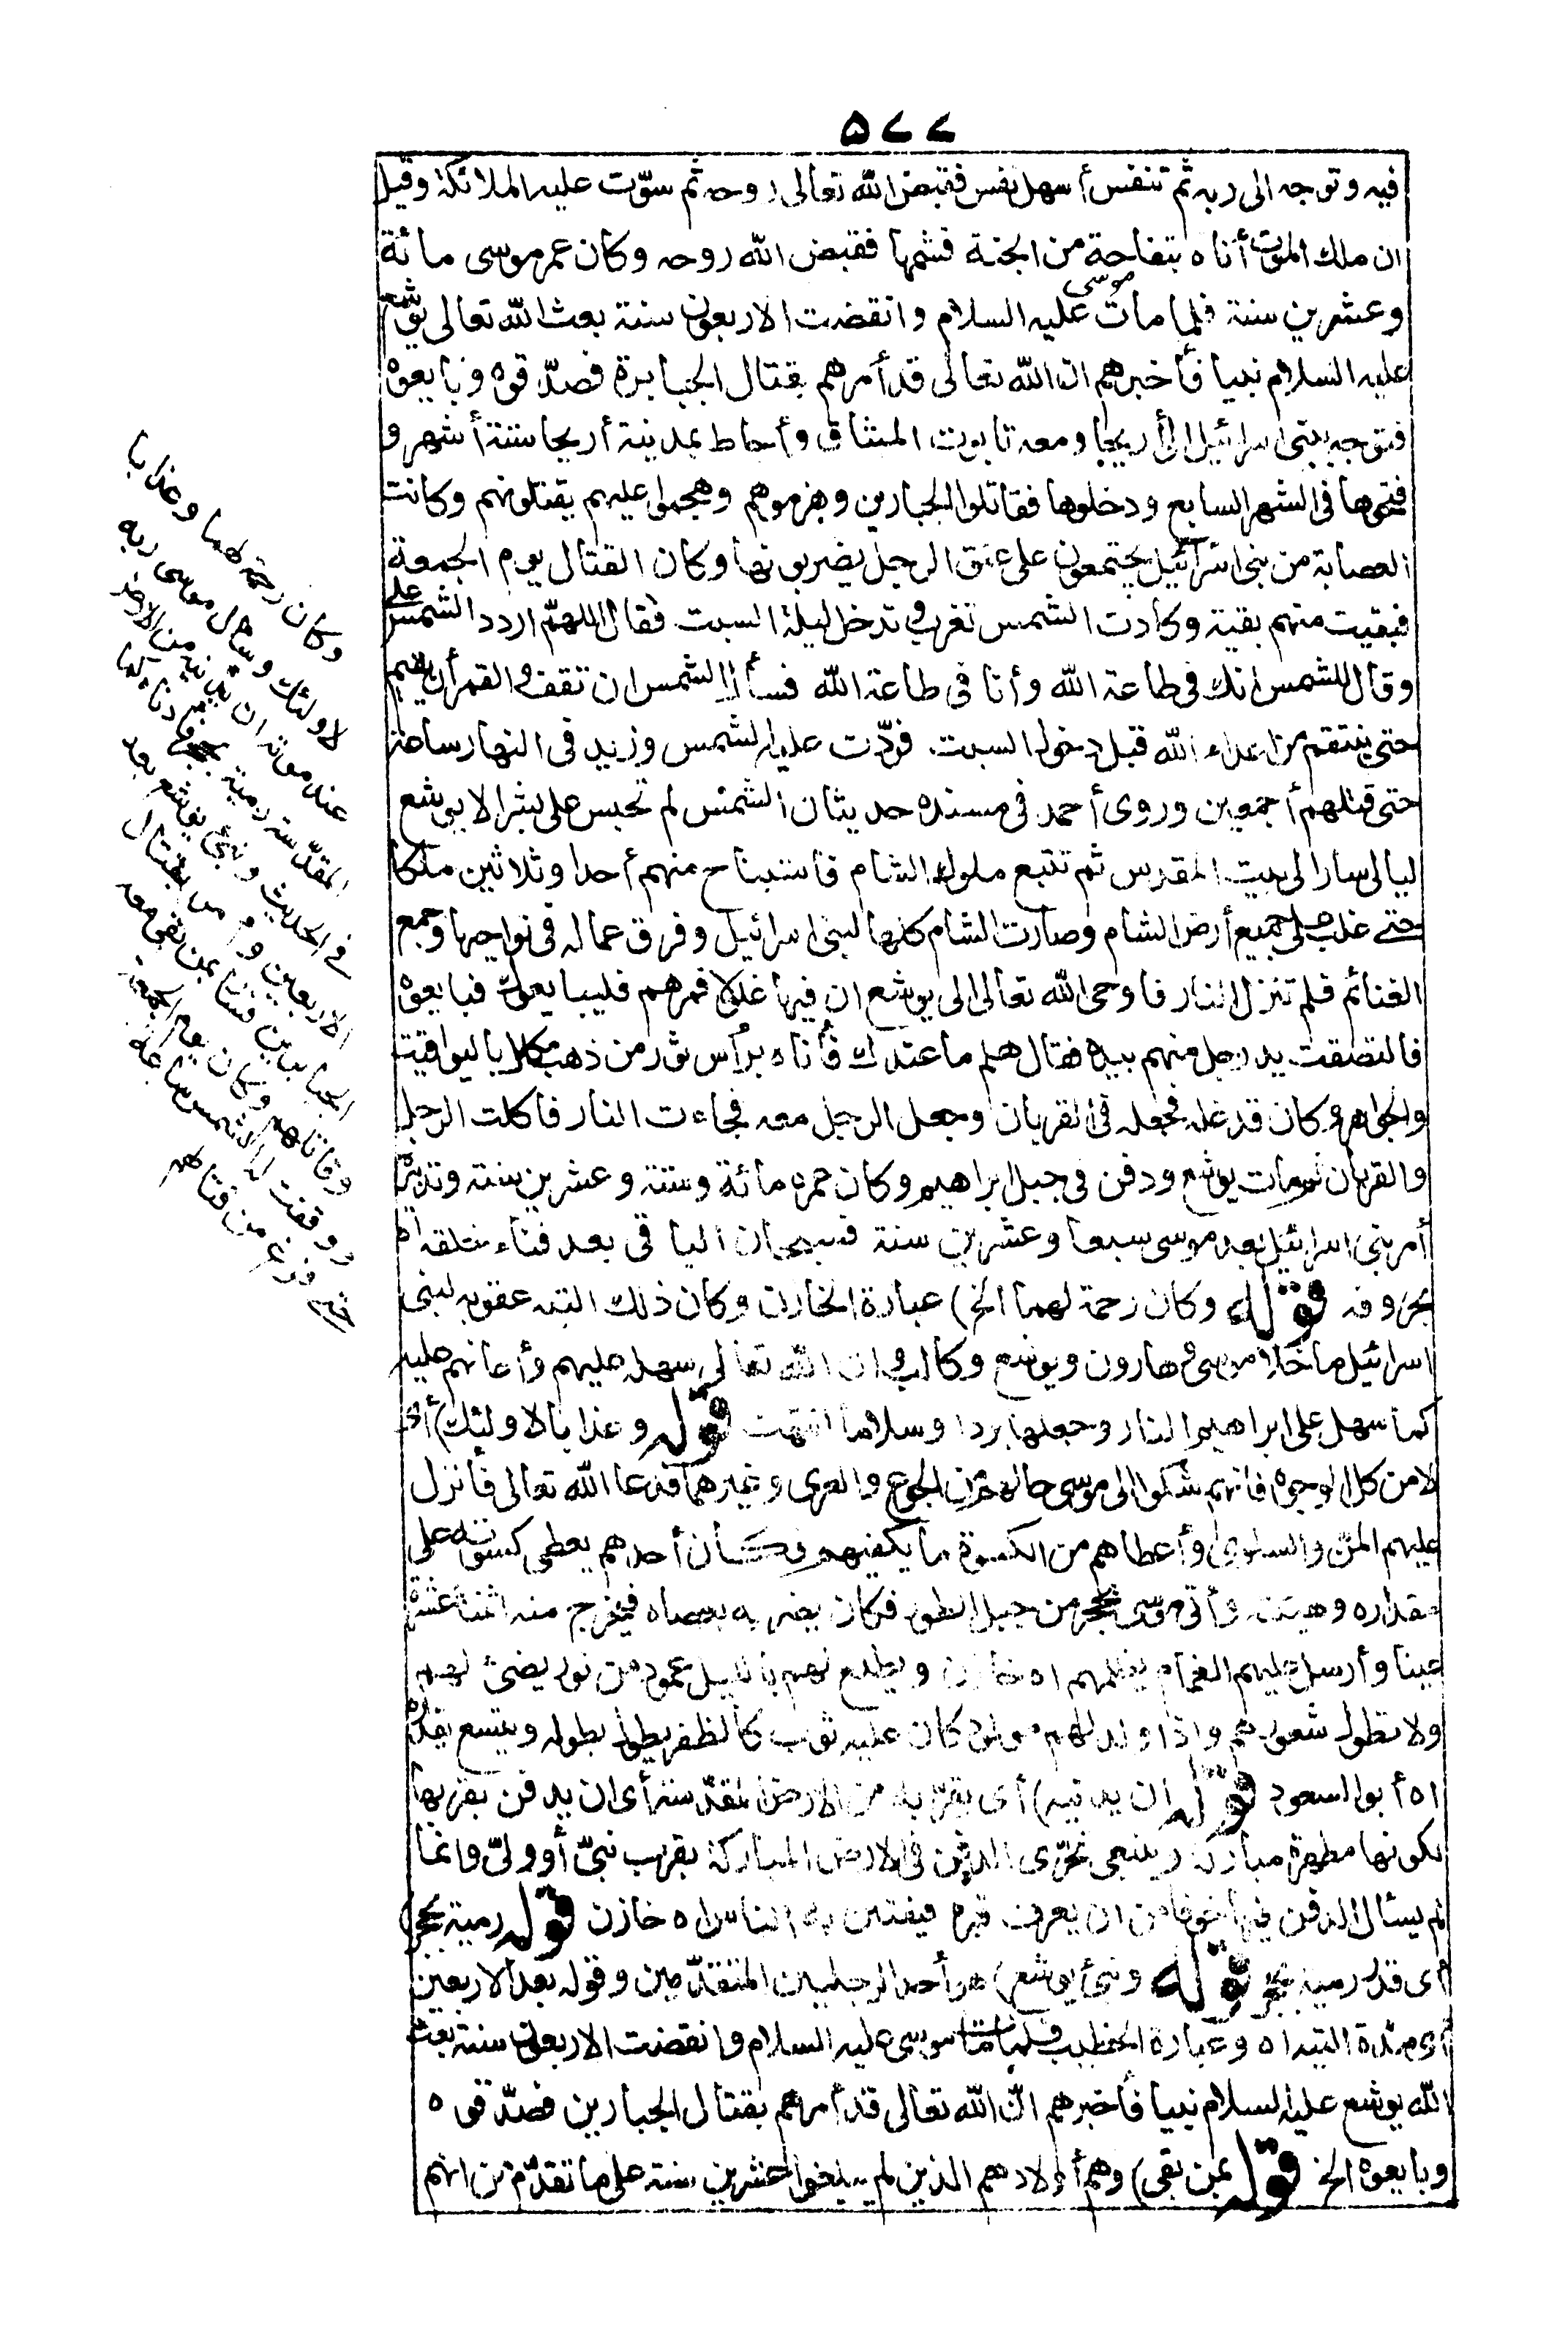 ٥٧٧
فيه وتوجه الى ربه ثم تنفس أسهل نفس فقبض الله تعالى روحه ثم سوّت عليه الملائكة وقيل
ان ملك الموت أتاه بتفاحة من الجنة فشمها فقبض الله روحه وكان عمر موسى مائة
وعشرين سنة فلما مات موسى عليه السلام وانقضت الاربعون سنة بعث الله تعالى يوشع
عليه السلام نبيا فأخبرهم ان الله تعالى قد أمرهم بقتال الجبابرة فصدّقوه وبايعوه
فتوجه ببنى اسرائيل الى أريحا ومعه تابوت الميثاق وأحاط بمدينة أريحا ستة أشهر و
فتحوها فى الشهر السابع ودخلوها فقاتلوا الجبارين وهزموهم وهجموا عليهم يقتلونهم وكانت
العصابة من بنى اسرائيل يجتمعون على عنق الرجل يضربونها وكان القتال يوم الجمعة
فبقيت منهم بقية وكادت الشمس تغرب وتدخل ليلة السبت فقال اللهمّ اردد الشمس علىّ
وقال للشمس انك فى طاعة الله وأنا فى طاعة الله فسأل الشمس ان تقف والقمر أن يقيم
حتى ينتقم من اعداء الله قبل دخول السبت فردّت عليه الشمس وزيد فى النهار ساعة
حتى قتلهم أجمعين وروى أحمد فى مسنده حديث ان الشمس لم تحبس على بشر الا ليوشع
ليالى سار الى بيت المقدس ثم تتبع ملوك الشام فاستباح منهم أحدا وثلاثين ملكا
حتى غلب على جميع أرض الشام وصارت الشام كلها لبنى اسرائيل وفرق عماله فى نواحيها وجمع
الغنائم فلم تنزل النار فاوحى الله تعالى الى يوشع ان فيها غلولا فمرهم فليبايعوك فبايعوه
فالتصقت يد رجل منهم بيده فقال هلم ما عندك فأتاه برأس ثور من ذهب مكلل باليواقيت
والجواهر وكان قد غله فجعله فى القربان وجعل الرجل معه فجاءت النار فاكلت الرجل
والقربان ثم مات يوشع ودفن فى جبل ابراهيم وكان عمره مائة وستة وعشرين سنة وتدبيره
أمر بنى اسرائيل بعد موسى سبعا وعشرين سنة فسبحان الباقى بعد فناء خلقه اه
بحروفه قوله وكان رحمة لهما الخ) عبارة الخازن وكان ذلك التيه عقوبة لبنى
اسرائيل ما خلا موسى وهارون ويوشع وكالب وان الله تعالى سهله عليهم وأعانهم عليه
كما سهل على ابراهيم النار وجعلها بردا وسلاما انتهت قوله وعذابا لاولئك) أى
لا من كل الوجوه فانهم شكوا الى موسى حالهم من الجوع والعرى وغيرهما فدعا الله تعالى فأنزل
عليهم المنّ والسلوى وأعطاهم من الكسوة ما يكفيهم وكان أحدهم يعطى كسوته على
مقداره وهيئته وأتى موسى بحجر من جبل الطور فكان يضربه بعصاه فيخرج منه اثنتا عشرة
عينا وأرسل عليهم الغمام يظلهم اه خازن ويطلع لهم بالليل عمود من نور يضئ لهم
ولا تطول شعورهم واذا ولد لهم مولود كان عليه ثوب كالظفر يطول بطوله ويتسع بقدره
اه أبو السعود قوله ان يدنيه) أى يقرّبه من الارض المقدّسة أى ان يدفن بقربها
لكونها مطهرة مباركة وينبغى تحرّى الدفن فى الارض المباركة بقرب نبىّ أو ولىّ وانما
لم يسئل الدفن فيها خوفا من ان يعرف قبره فيفتتن به الناس اه خازن قوله رمية بحجر)
أى قدر رمية بحجر قوله ونبئ يوشع) هو أحد الرجلين المتقدّمين وقوله بعد الاربعين
أى مدّة التيه اه وعبارة الخطيب فلما مات موسى عليه السلام وانقضت الاربعون سنة بعث
الله يوشع عليه السلام نبيا فأخبرهم انّ الله تعالى قد أمرهم بقتال الجبارين فصدّقوه
وبايعوه الخ قوله بمن بقى) وهم أولادهم الذين لم يبلغوا عشرين سنة على ما تقدّم من انهم
وكان رحمة لهما وعذابا
لاولئك وسأل موسى ربه
عند موته ان يدنيه من الارض
المقدّسة رمية بحجر فادناه كما
فى الحديث ونبئ يوشع بعد
الاربعين وامر بقتال
الجبارين فسار بمن بقى معه
وقاتلهم وكان يوم الجمعة
ووقفت له الشمس ساعة
حتى فرغ من قتالهم